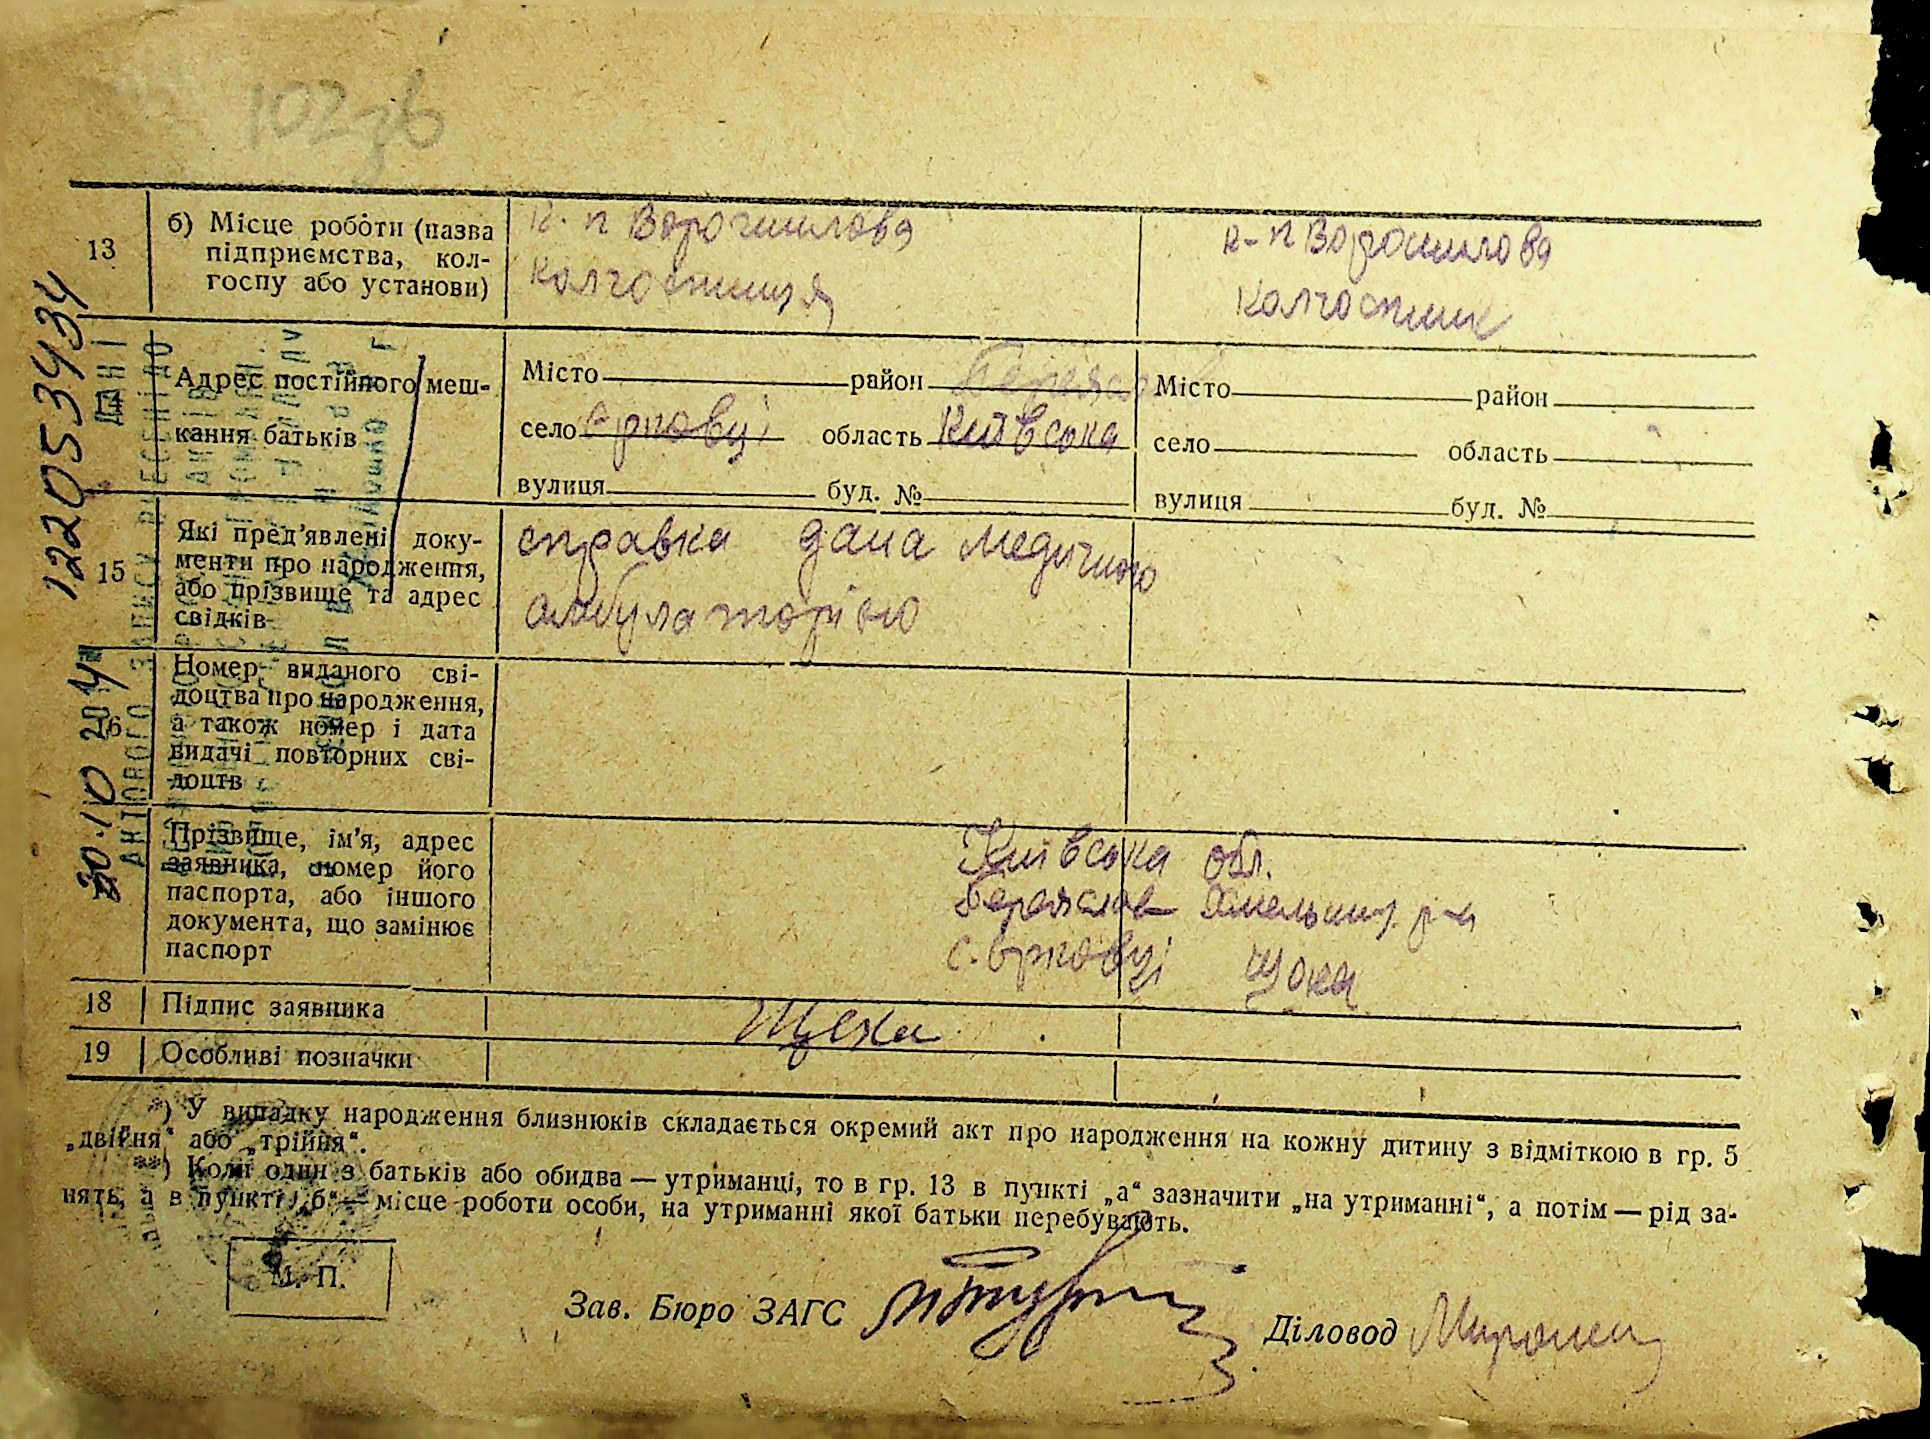 102зв
13
б) Місце роботи (назва
підприємства, кол-
госпу або установи)
к-п Ворошилова
колгоспниця
к-п Ворошилова
колгоспник
Адрес постійного меш-
кання батьків
Місто район Переясл
село Єрковці область Київська
вулиця буд. №
Місто район
село область
вулиця буд. №
15
Які пред'явлені доку-
менти про народження,
або прізвище та адрес
свідків
справка дана медичною
амбулаторією
16
Номер виданого сві-
доцтва про народження,
а також номер і дата
видачі повторних сві-
доцтв
Прізвище, ім'я, адрес
заявника, номер його
паспорта, або іншого
документа, що замінює
паспорт
Київська обл.
Переяслав Хмельниц. р-н
с. Єрковці
18 Підпис заявника
19 Особливі позначки
*) У випадку народження близнюків складається окремий акт про народження на кожну дитину з відміткою в гр. 5
„двійня“ або „трійня“.
**) Коли один з батьків або обидва — утриманці, то в гр. 13 в пункті „а“ зазначити „на утриманні“, а потім — рід за-
нять, а в пункті „б“ — місце роботи особи, на утриманні якої батьки перебувають.
М. П.
Зав. Бюро ЗАГС
Діловод
122053434
30.10 20
ДАНІ
АКТОВОГО ЗАПИСУ ВНЕСЕНІ ДО